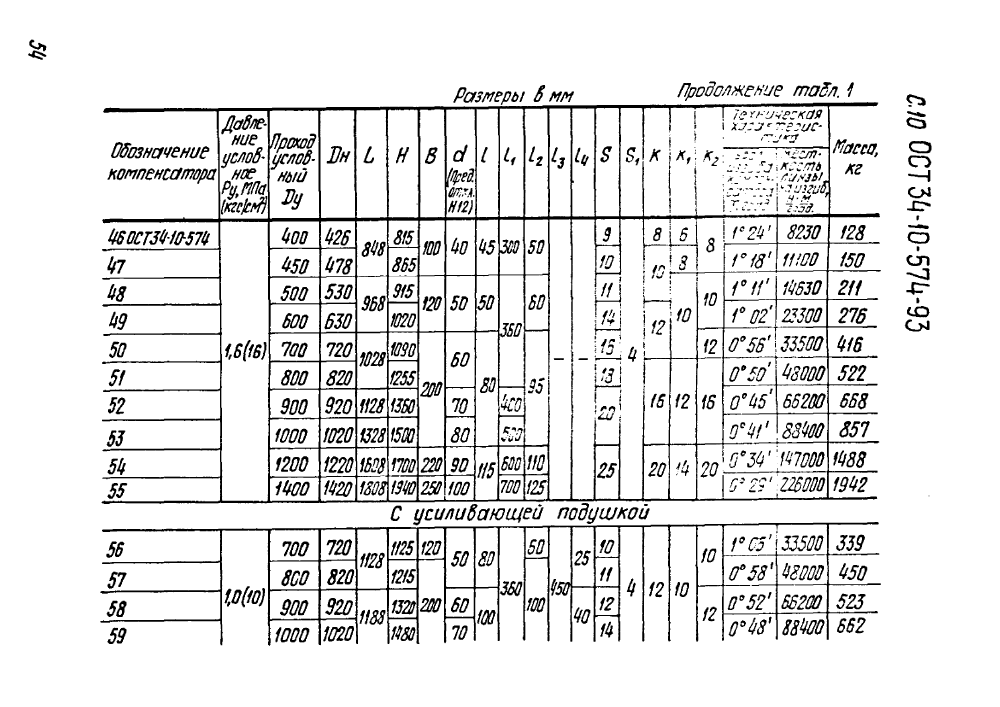 54
с.10 ОСТ 34-10-574-93
Размеры в мм Продолжение табл. 1
Обозначение компенсатора | Давление условное Ру, МПа (кгс/см²) | Проход условный Dу | Dн | L | H | B | d (Пред. откл. Н12) | l | l₁ | l₂ | l₃ | l₄ | S | S₁ | K | K₁ | K₂ | Техническая характеристика | Масса, кг
жесткость линзы на изгиб,
46 ОСТ34-10-574 | 1,6(16) | 400 | 426 | 848 | 815 | 100 | 40 | 45 | 300 | 50 | – | – | 9 | 4 | 8 | 6 | 8 | 1°24' | 8230 | 128
47 | 450 | 478 | 865 | 10 | 10 | 8 | 1°18' | 11100 | 150
48 | 500 | 530 | 968 | 915 | 120 | 50 | 50 | 360 | 60 | 11 | 10 | 10 | 1°11' | 14630 | 211
49 | 600 | 630 | 1020 | 14 | 12 | 1°02' | 23300 | 276
50 | 700 | 720 | 1028 | 1090 | 200 | 60 | 80 | 95 | 16 | 12 | 0°56' | 33500 | 416
51 | 800 | 820 | 1255 | 13 | 16 | 12 | 16 | 0°50' | 48000 | 522
52 | 900 | 920 | 1128 | 1360 | 70 | 400 | 20 | 0°45' | 66200 | 668
53 | 1000 | 1020 | 1328 | 1500 | 80 | 500 | 0°41' | 88400 | 857
54 | 1200 | 1220 | 1608 | 1700 | 220 | 90 | 115 | 600 | 110 | 25 | 20 | 14 | 20 | 0°34' | 147000 | 1488
55 | 1400 | 1420 | 1808 | 1940 | 250 | 100 | 700 | 125 | 0°29' | 226000 | 1942
С усиливающей подушкой
56 | 1,0(10) | 700 | 720 | 1128 | 1125 | 120 | 50 | 80 | 360 | 50 | 450 | 25 | 10 | 4 | 12 | 10 | 10 | 1°05' | 33500 | 339
57 | 800 | 820 | 1215 | 200 | 100 | 11 | 0°58' | 48000 | 450
58 | 900 | 920 | 1188 | 1320 | 60 | 100 | 40 | 12 | 12 | 0°52' | 66200 | 523
59 | 1000 | 1020 | 1480 | 70 | 14 | 0°48' | 88400 | 662